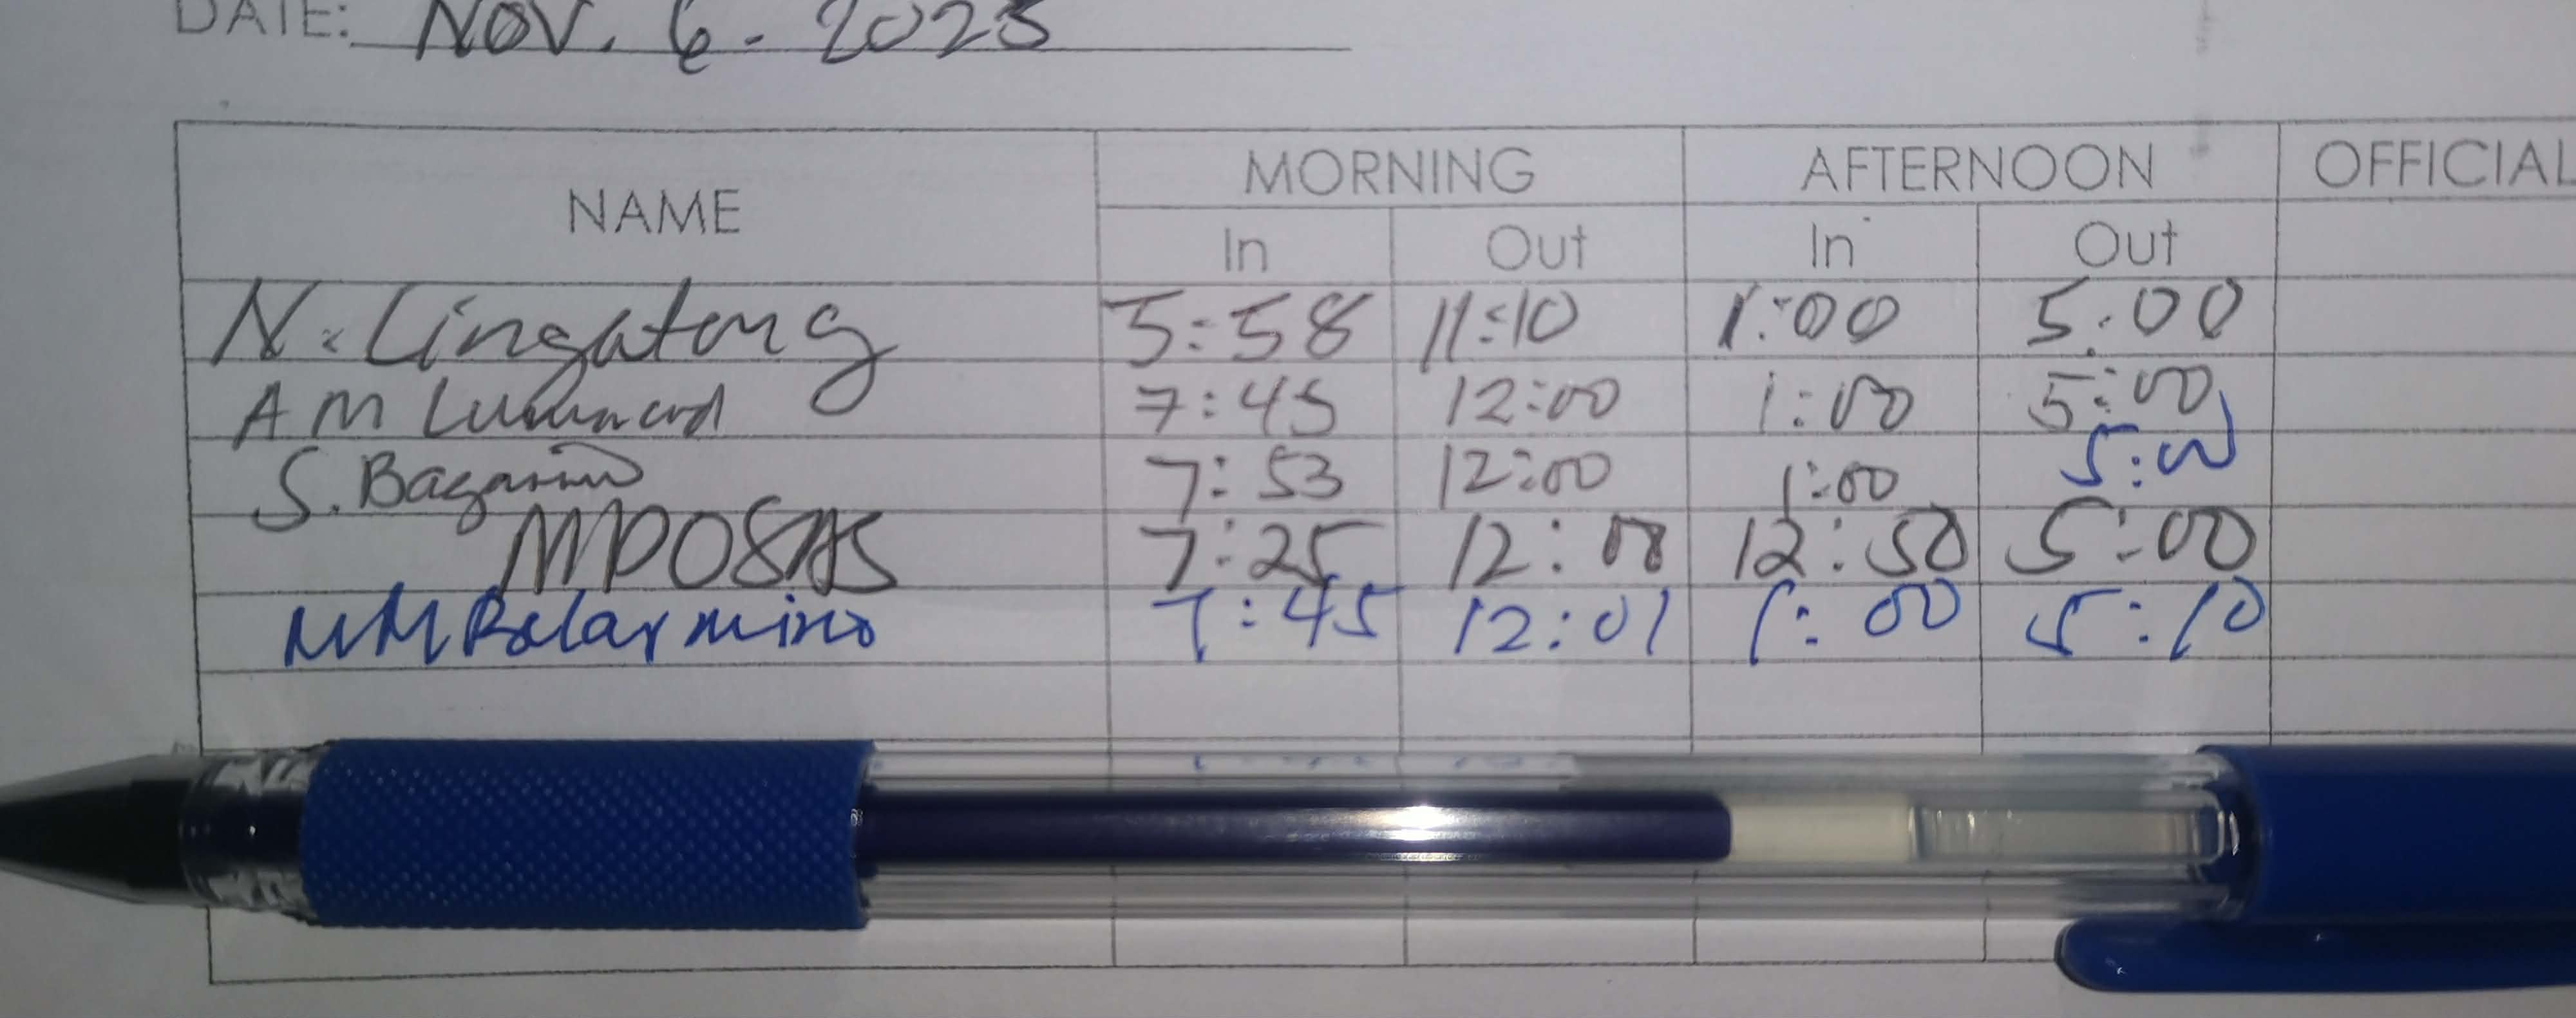 DATE: NOV. 6. 2025
NAME MORNING AFTERNOON OFFICIAL
In Out In Out
N. Lingatong 5:58 11:10 1:00 5:00
A M 7:45 12:00 1:00 5:00
S. 7:53 12:00 1:00 5:00
MDOSAS 7:25 12:00 12:50 5:00
MMBelarmino 7:45 12:01 1:00 5:10